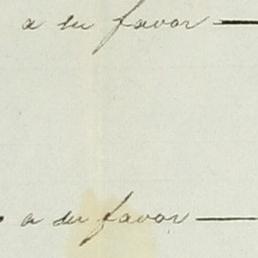 a su favor —
a su favor —